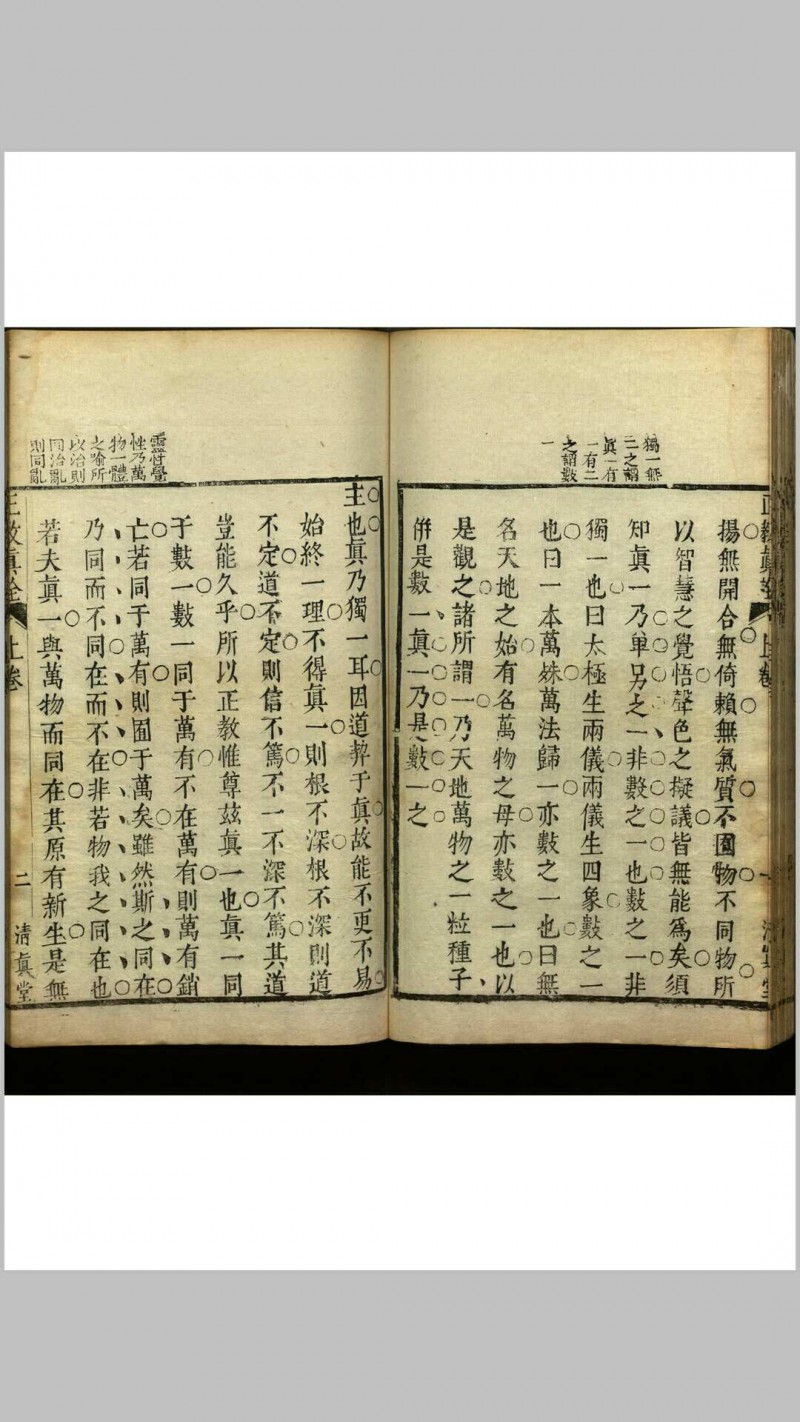 獨一無
二之謂
眞一有
一有二
之謂數
一
揚無開合無倚賴無氣質不囿物不同物所
以智慧之覺悟聲色之擬議皆無能爲矣須
知眞一乃單另之一非數之一也數之一非
獨一也曰太極生兩儀兩儀生四象數之一
也曰一本萬殊萬法歸一亦數之一也曰無
名天地之始有名萬物之母亦數之一也以
是觀之諸所謂一乃天地萬物之一粒種子
倂是數一眞一乃是數一之
靈性覺
性乃萬
物一體
之喻所
以治則
同治亂
則同亂
主也眞乃獨一耳因道契于眞故能不更不易
始終一理不得眞一則根不深根不深則道
不定道不定則信不篤不一不深不篤其道
豈能久乎所以正教惟尊兹眞一也眞一同
于數一數一同于萬有不在萬有則萬有銷
亡若同于萬有則囿于萬矣雖然斯之同在
乃同而不同在而不在非若物我之同在也
若夫眞一與萬物而同在其原有新生是無
正教眞詮 上卷 二 清眞堂